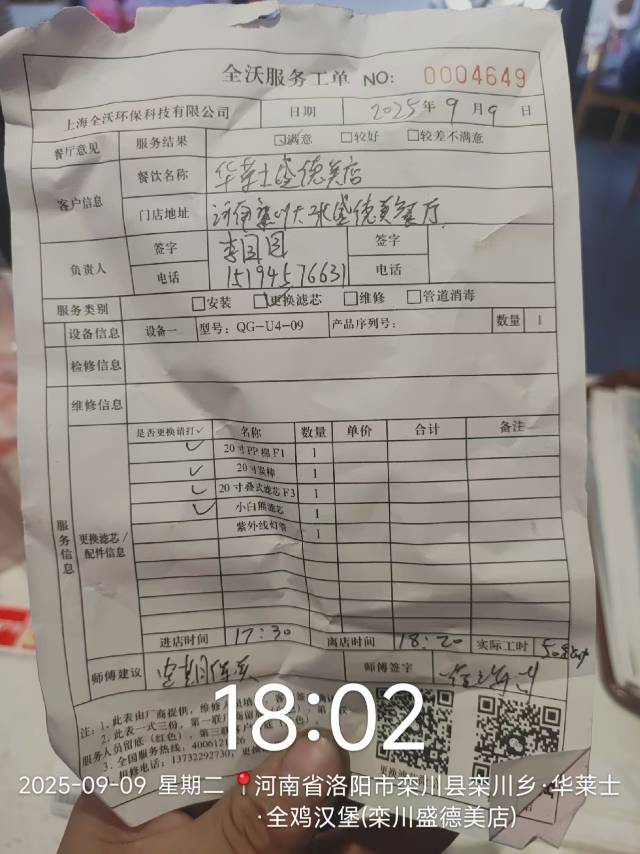 全沃服务工单 NO: 0004649
上海全沃环保科技有限公司 日期 2025年9月9日
餐厅意见 服务结果 ☑满意 □较好 □较差不满意
客户信息 餐饮名称 华莱士盛德美店
门店地址 河南栾川 盛德美餐厅
负责人 签字 李国国 签字
电话 15194576631 电话
服务类别 □安装 ☑更换滤芯 □维修 □管道消毒
服务信息
设备信息 设备一 型号: QG-U4-09 产品序列号: 数量 1
检修信息
维修信息
更换滤芯/配件信息
是否更换请打✓ 名称 数量 单价 合计 备注
✓ 20寸PP棉F1 1
✓ 20寸炭棒 1
✓ 20寸叠式滤芯F3 1
✓ 小白熊滤芯 1
紫外线灯管 1
进店时间 17:30 离店时间 18:20 实际工时 50
师傅建议 定期 师傅签字
注: 1. 此表由厂商提供, 维修
2. 此表一式三份, 第一联
服务人员留底(红色), 第三联
3. 全国服务热线: 4006
报修电话: 13732292730, 更换
18:02
2025-09-09 星期二 河南省洛阳市栾川县栾川乡·华莱士
·全鸡汉堡(栾川盛德美店)